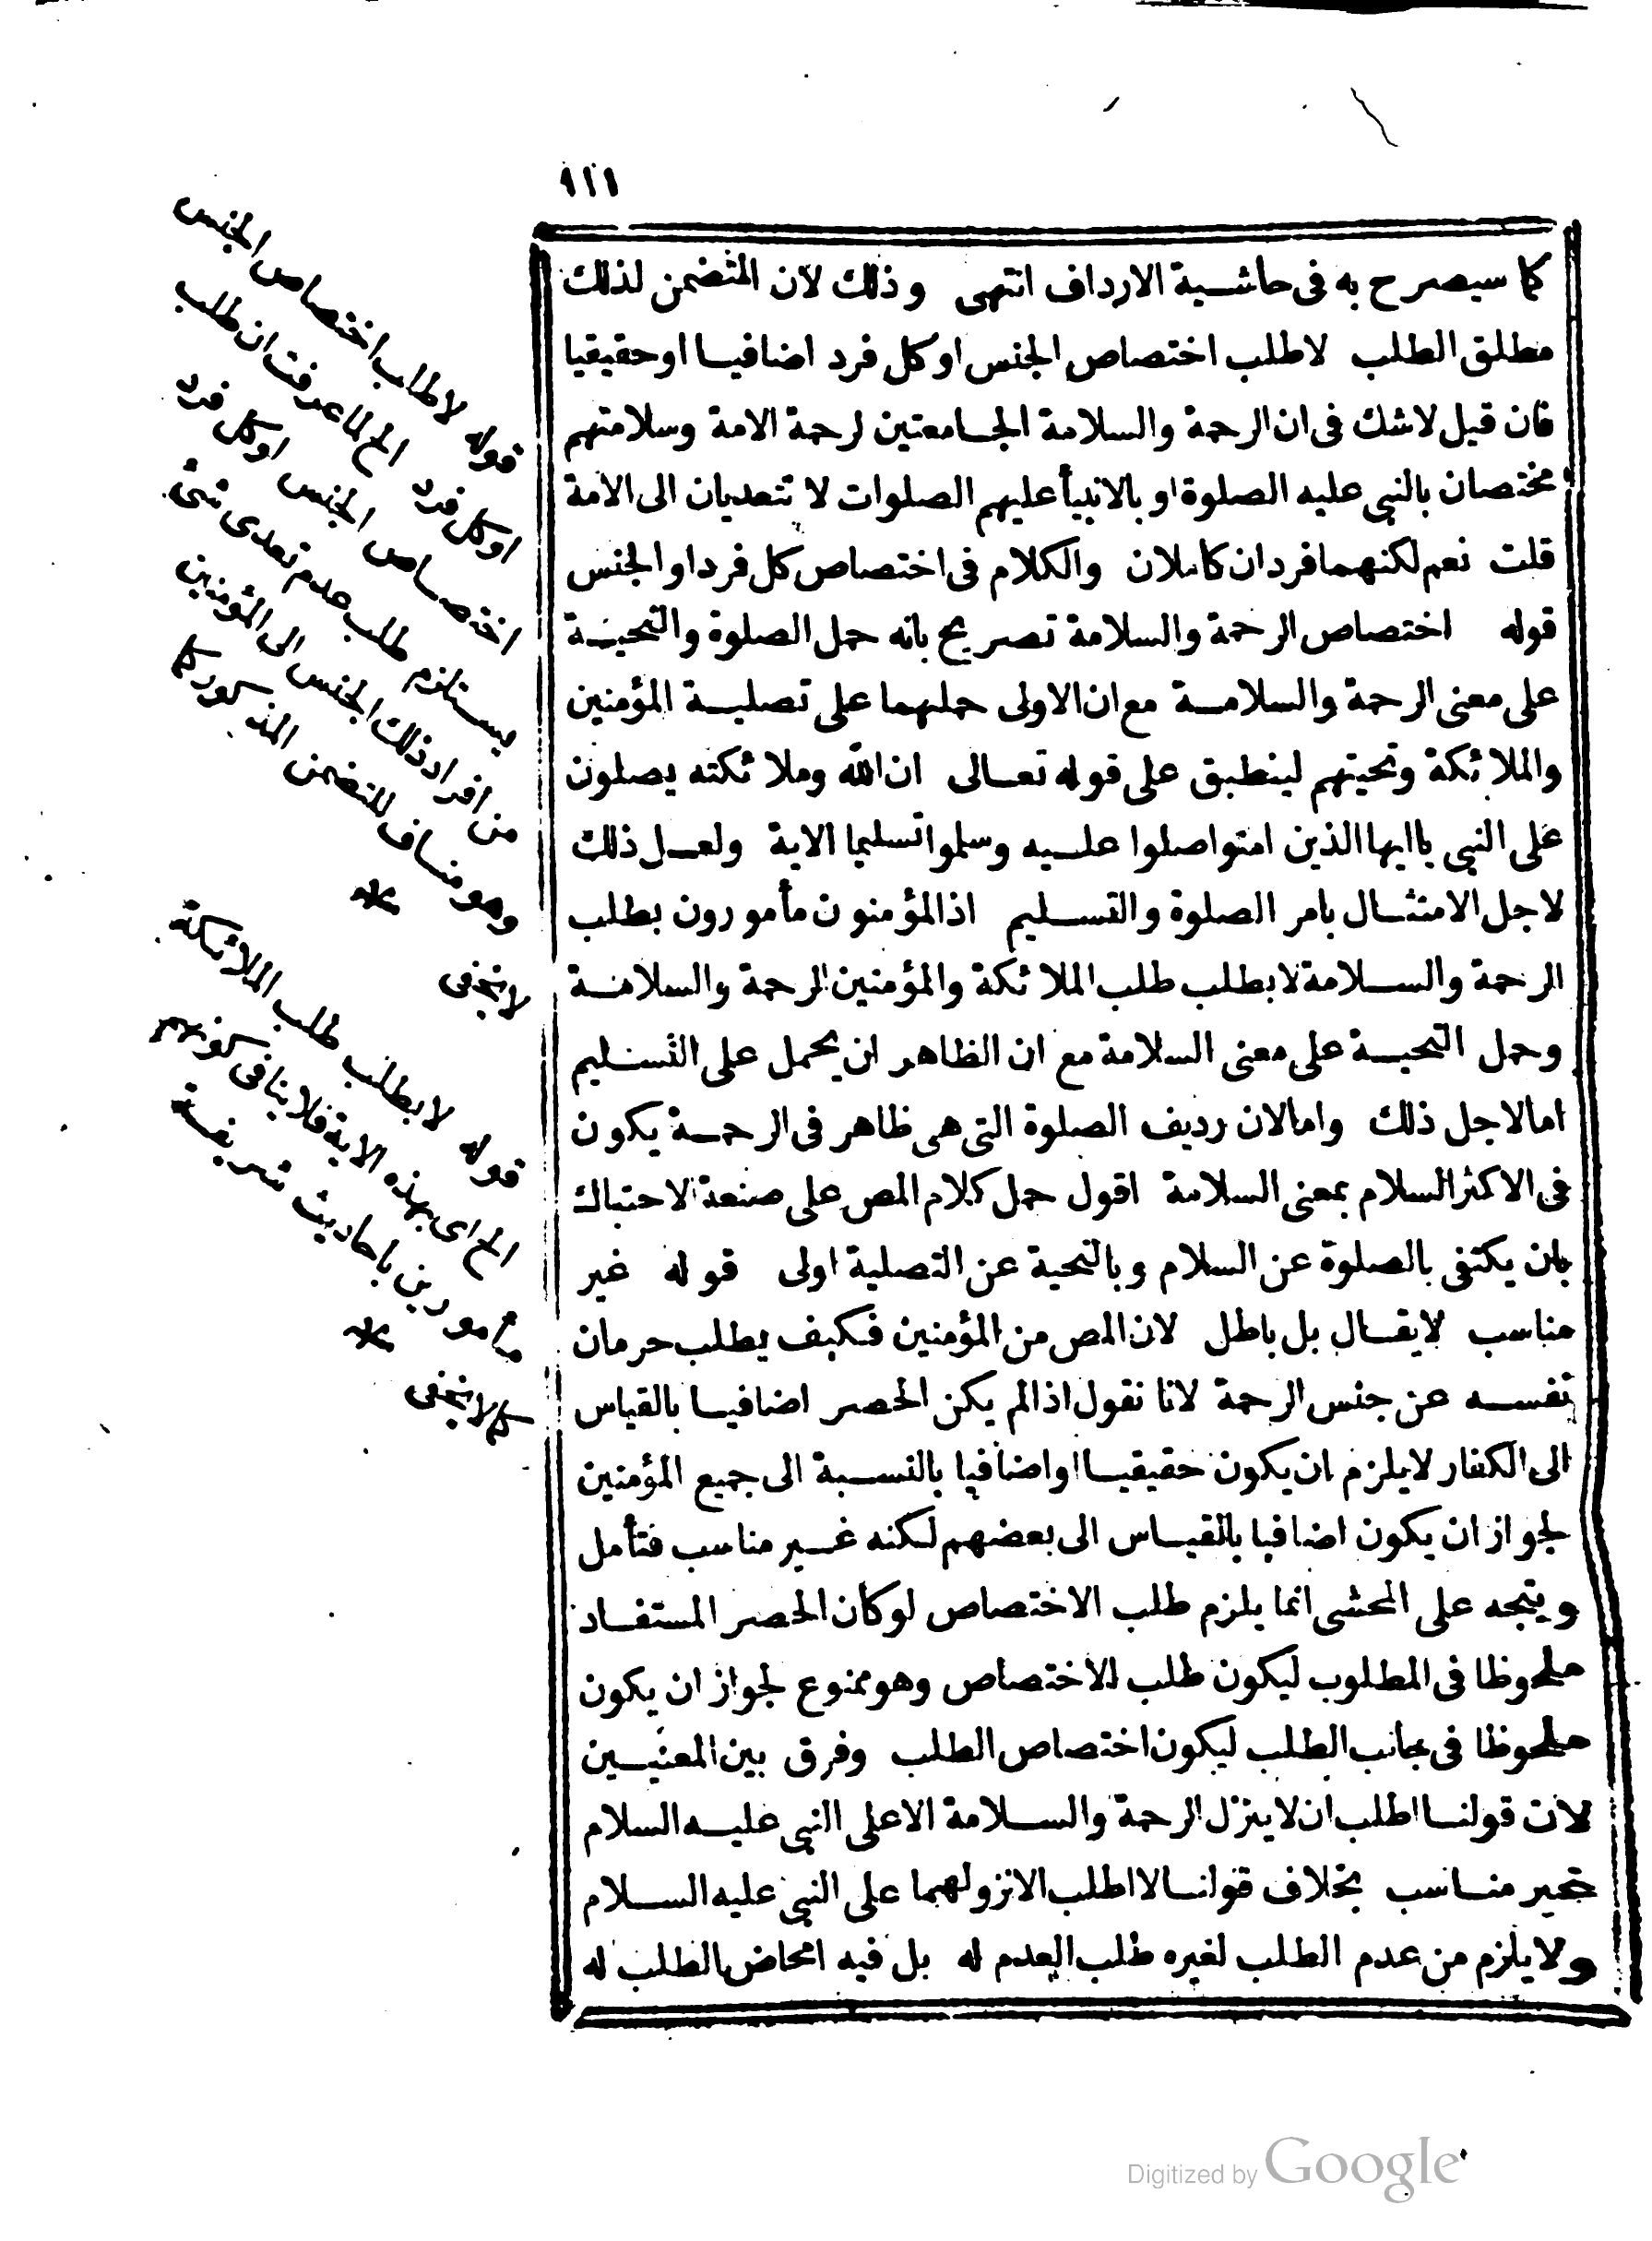 ١١١
كما سيصرح به فى حاشية الارداف انتهى وذلك لان المتضمن لذلك
مطلق الطلب لا طلب اختصاص الجنس او كل فرد اضافيا او حقيقيا
فان قيل لاشك فى ان الرحمة والسلامة الجامعتين لرحمة الامة وسلامتهم
مختصان بالنبى عليه الصلوة او بالانبيأ عليهم الصلوات لا تتعديان الى الامة
قلت نعم لكنهما فردان كاملان والكلام فى اختصاص كل فرد او الجنس
قوله اختصاص الرحمة والسلامة تصريح بانه حمل الصلوة والتحية
على معنى الرحمة والسلامة مع ان الاولى حملهما على تصلية المؤمنين
والملائكة وتحيتهم لينطبق على قوله تعالى ان الله وملائكته يصلون
على النبى ياايها الذين امنوا صلوا عليه وسلموا تسليما الاية ولعل ذلك
لاجل الامتثال بامر الصلوة والتسليم اذ المؤمنون مأمورون بطلب
الرحمة والسلامة لا بطلب طلب الملائكة والمؤمنين الرحمة والسلامة
وحمل التحية على معنى السلامة مع ان الظاهر ان يحمل على التسليم
اما لاجل ذلك واما لان رديف الصلوة التى هى ظاهر فى الرحمة يكون
فى الاكثر السلام بمعنى السلامة اقول حمل كلام المص على صنعة الاحتباك
بان يكتفى بالصلوة عن السلام وبالتحية عن التصلية اولى قوله غير
مناسب لايقال بل باطل لان المص من المؤمنين فكيف يطلب حرمان
نفسه عن جنس الرحمة لانا نقول اذا لم يكن الحصر اضافيا بالقياس
الى الكفار لايلزم ان يكون حقيقيا او اضافيا بالنسبة الى جميع المؤمنين
لجواز ان يكون اضافيا بالقياس الى بعضهم لكنه غير مناسب فتأمل
ويتجه على المحشى انما يلزم طلب الاختصاص لو كان الحصر المستفاد
ملحوظا فى المطلوب ليكون طلب الاختصاص وهو ممنوع لجواز ان يكون
ملحوظا فى جانب الطلب ليكون اختصاص الطلب وفرق بين المعنيين
لان قولنا اطلب ان لا ينزل الرحمة والسلامة الا على النبى عليه السلام
غير مناسب بخلاف قولنا لا اطلب الا نزولهما على النبى عليه السلام
ولايلزم من عدم الطلب لغيره طلب العدم له بل فيه امحاض الطلب له
قوله لا طلب اختصاص الجنس
او كل فرد الخ لما عرفت ان طلب
اختصاص الجنس او كل فرد
يستلزم طلب عدم تعدى شئ
من افراد ذلك الجنس الى المؤمنين
وهو مناف للتضمن المذكور كما
لا يخفى *
قوله لا بطلب طلب الملائكة
الخ اى بهذه الاية فلا ينافى كونهم
مأمورين باحاديث شريفة
كما لا يخفى *
Digitized by Google